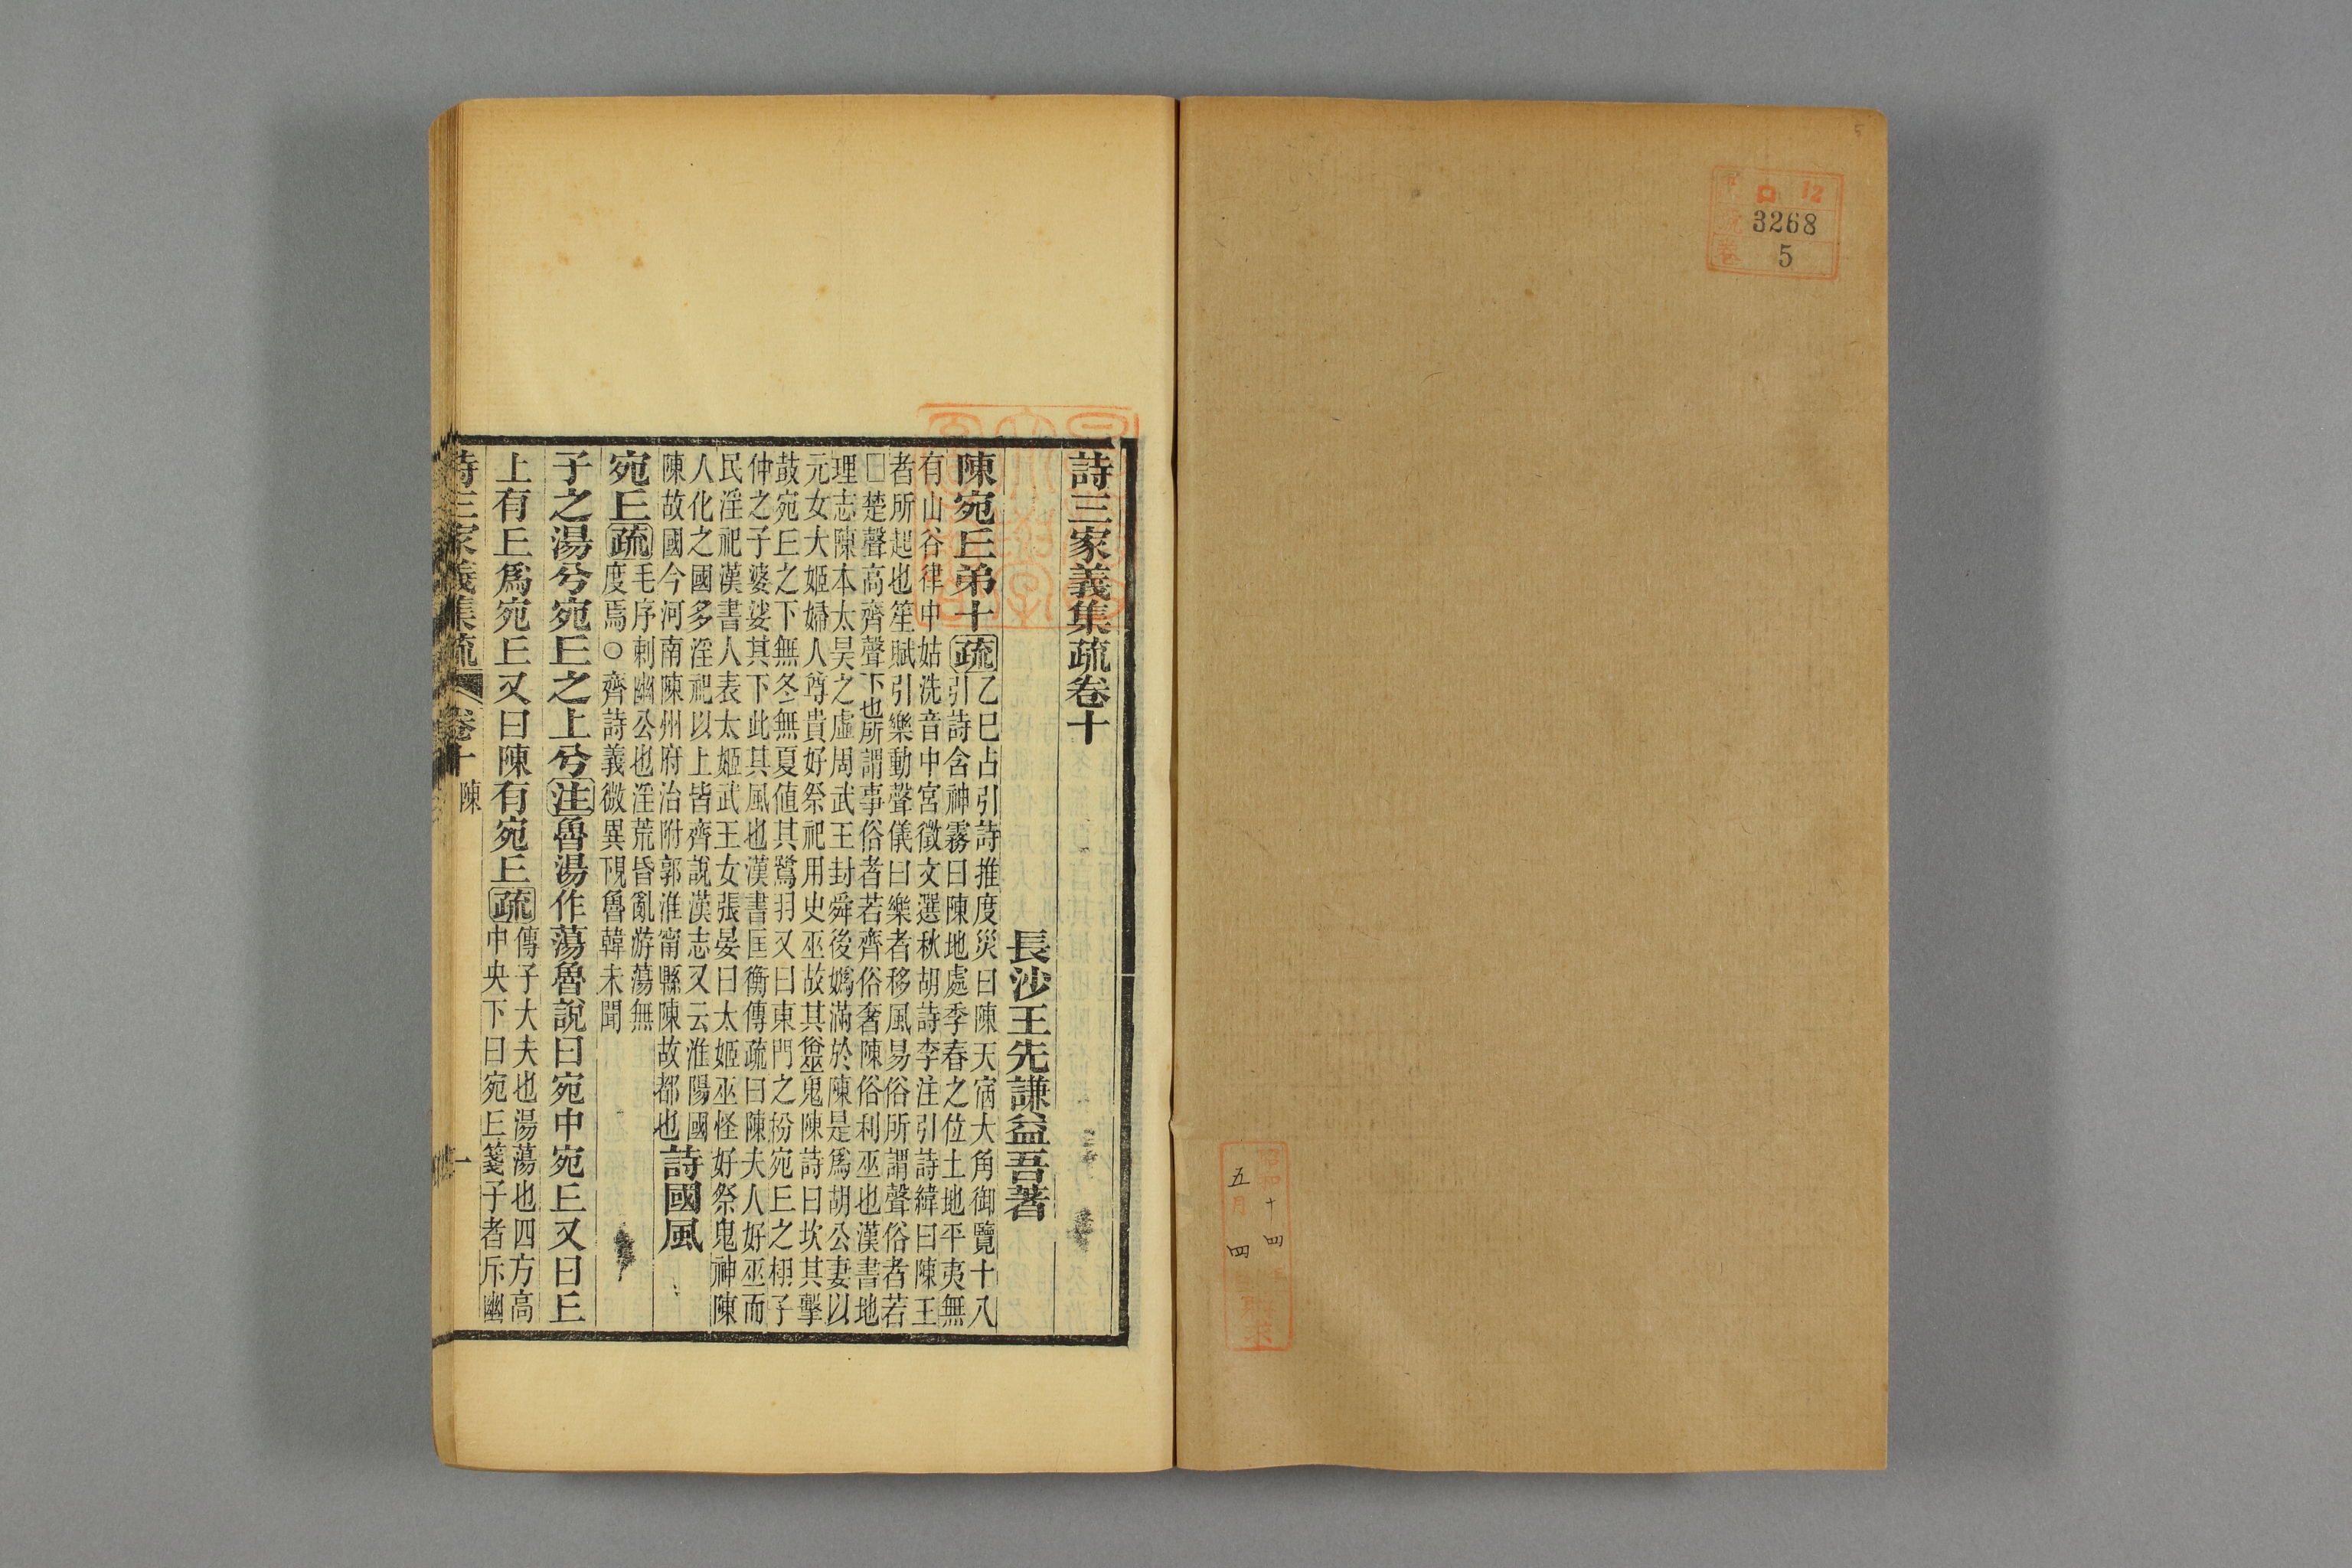 口 12
號 3268
卷 5
昭和十四年
五月四日
詩三家義集疏卷十
長沙王先謙益吾著
陳宛𠀉弟十疏
乙巳占引詩推度災曰陳天宿大角御覽十八
引詩含神霧曰陳地處季春之位土地平夷無
有山谷律中姑洗音中宮徵文選秋胡詩李注引詩緯曰陳王
者所起也笙賦引樂動聲儀曰樂者移風易俗所謂聲俗者若
□楚聲高齊聲下也所謂事俗者若齊俗奢陳俗利巫也漢書地
理志陳本太昊之虛周武王封舜後嬀滿於陳是爲胡公妻以
元女大姬婦人尊貴好祭祀用史巫故其俗巫鬼陳詩曰坎其擊
鼓宛𠀉之下無冬無夏値其鷺羽又曰東門之枌宛𠀉之栩子
仲之子婆娑其下此其風也漢書匡衡傳疏曰陳夫人好巫而
民淫祀漢書人表太姬武王女張晏曰太姬巫怪好祭鬼神陳
人化之國多淫祀以上皆齊說漢志又云淮陽國
陳故國今河南陳州府治附郭淮甯縣陳故都也
詩國風
宛𠀉疏
毛序刺幽公也淫荒昏亂游蕩無
度焉○齊詩義微異覕魯韓未聞
子之湯兮宛𠀉之上兮注魯湯作蕩魯說曰宛中宛𠀉又曰𠀉
上有𠀉爲宛𠀉又曰陳有宛𠀉疏
傳子大夫也湯蕩也四方高
中央下曰宛𠀉箋子者斥幽
詩三家義集疏 卷十 陳 一